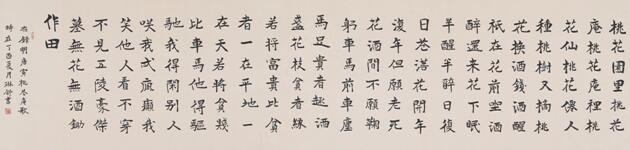 桃花園里桃花
庵桃花庵裡桃
花仙桃花僊人
種桃樹又摘桃
花換酒錢酒醒
祇在花前坐酒
醉還来花下眠
半醒半醉日復
日花落花開年
復年但願老死
花酒間不願鞠
躬車馬前車塵
馬足貴者趣酒
盞花枝貧者緣
若將富貴比貧
者一在平地一
在天若將貧賤
比車馬他得驅
馳我得閒別人
咲我忒瘋癲我
笑他人看不穿
不見五陵豪傑
墓無花無酒鋤
作田
右錄明唐寅桃花庵歌
時在丁酉夏月琳書